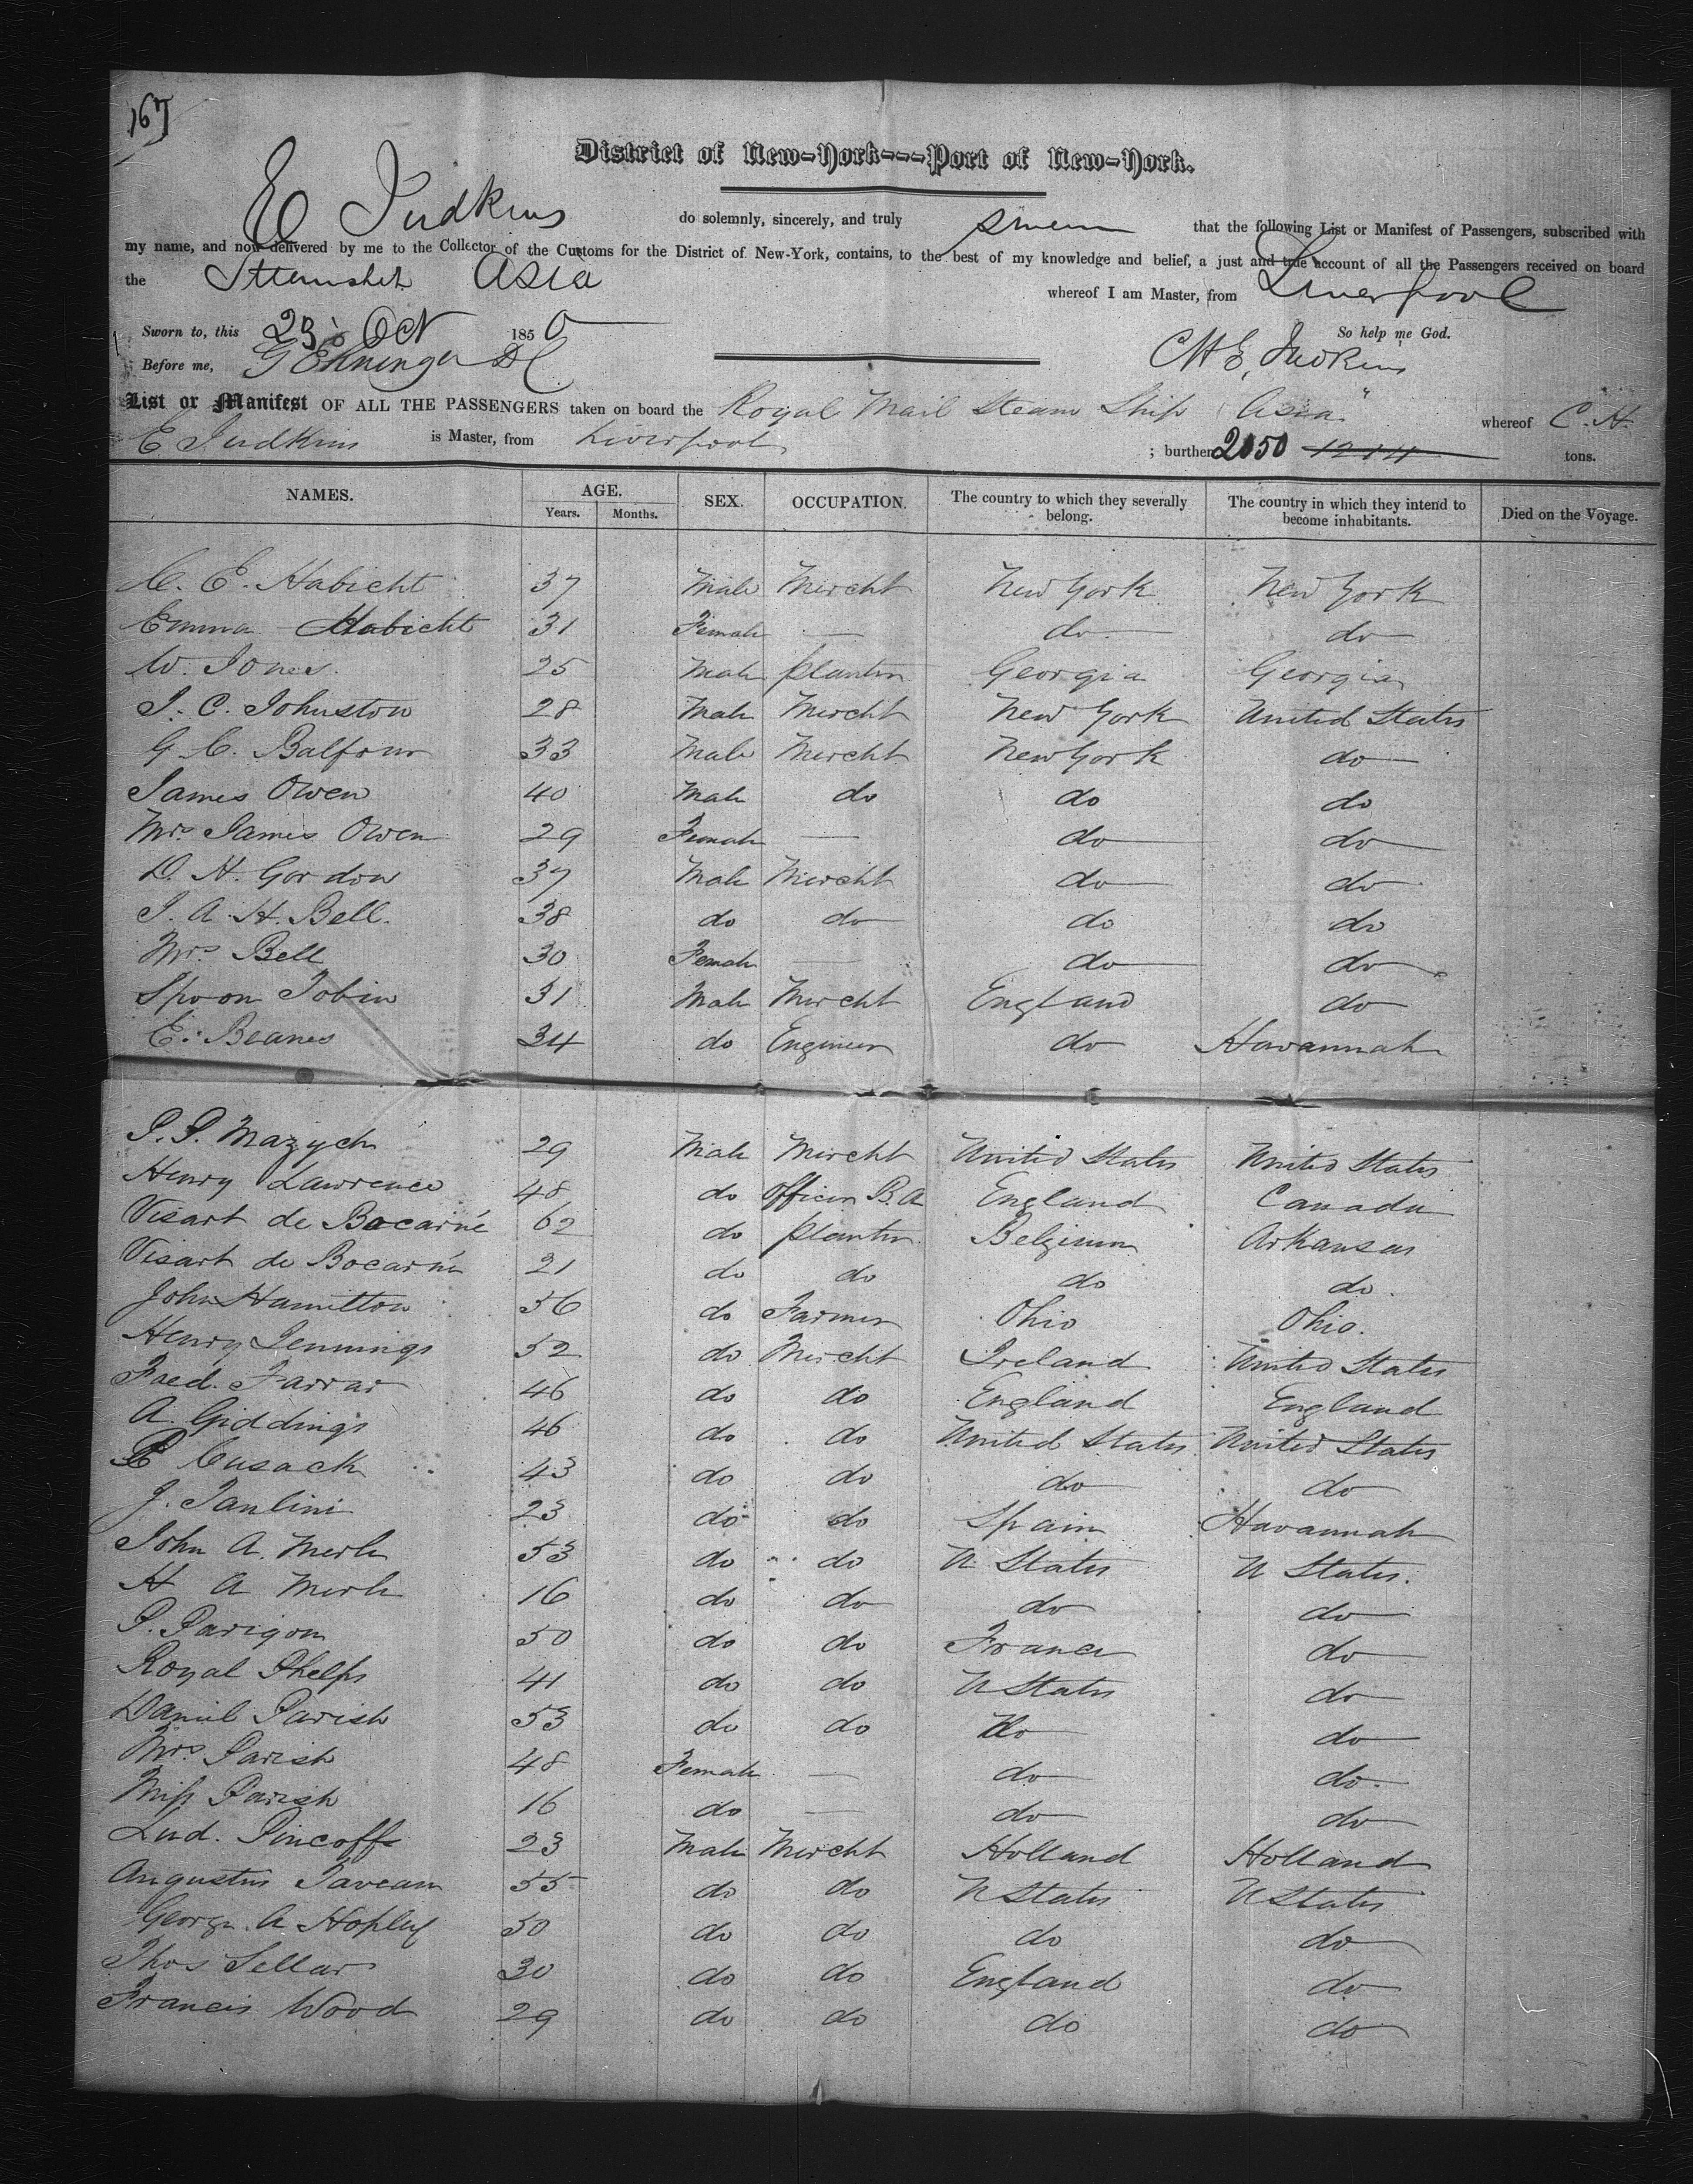 167
District of New-York---Port of New-York.
E Judkins do solemnly, sincerely, and truly swear that the following List or Manifest of Passengers, subscribed with
my name, and now delivered by me to the Collector of the Customs for the District of New-York, contains, to the best of my knowledge and belief, a just and true account of all the Passengers received on board
the Steamship Asia whereof I am Master, from Liverpool
Sworn to, this 23 Oct 1850 So help me God.
Before me, G Ehninger DC CHE Judkins
List or Manifest OF ALL THE PASSENGERS taken on board the Royal Mail Steam Ship "Asia" whereof C. H.
E Judkins is Master, from Liverpool ; burthen 2050 1214 tons.
NAMES. AGE. SEX. OCCUPATION. The country to which they severally belong. The country in which they intend to become inhabitants. Died on the Voyage.
Years. Months.
C. E. Habicht 37 Male Mercht New York New York
Emma Habicht 31 Female — do do
W. Jones 25 Male planter Georgia Georgia
J. C. Johnston 28 Male Mercht New York United States
G C. Balfour 33 Male Mercht New York do
James Owen 40 Male do do do
Mrs James Owen 29 Female — do do
D. H. Gordon 37 Male Mercht do do
J. A. H. Bell. 38 do do do do
Mrs Bell 30 Female — do do
Spoon Tobin 31 Male Mercht England do
E. Beanes 34 do Engineer do Havannah
P. P. Mazych 29 Male Mercht United States United States
Henry Lawrence 48 do Officer B. A England Canada
Visart de Bocarmé 62 do planter Belgium Arkansas
Visart de Bocarmé 21 do do do do.
John Hamilton 56 do Farmer Ohio Ohio.
Henry Jennings 52 do Mercht Ireland United States
Fred. Farrar 46 do do England England
A. Giddings 46 do do United States United States
P Cusack 43 do do do do
J. Paulini 23 do do Spain Havannah
John A. Merle 53 do do U States U States.
H A Merle 16 do do do do
P. Parigon 50 do do France do
Royal Phelps 41 do do U States do
Daniel Parish 53 do do do do
Mrs Parish 48 Female — do do
Miss Parish 16 do — do do
Lud. Pincoffs 23 Male Mercht Holland Holland
Augustus Taveau 55 do do U States U States
George A 50 do do do do
Thos Sellar 30 do do England do
Francis Wood 29 do do do do